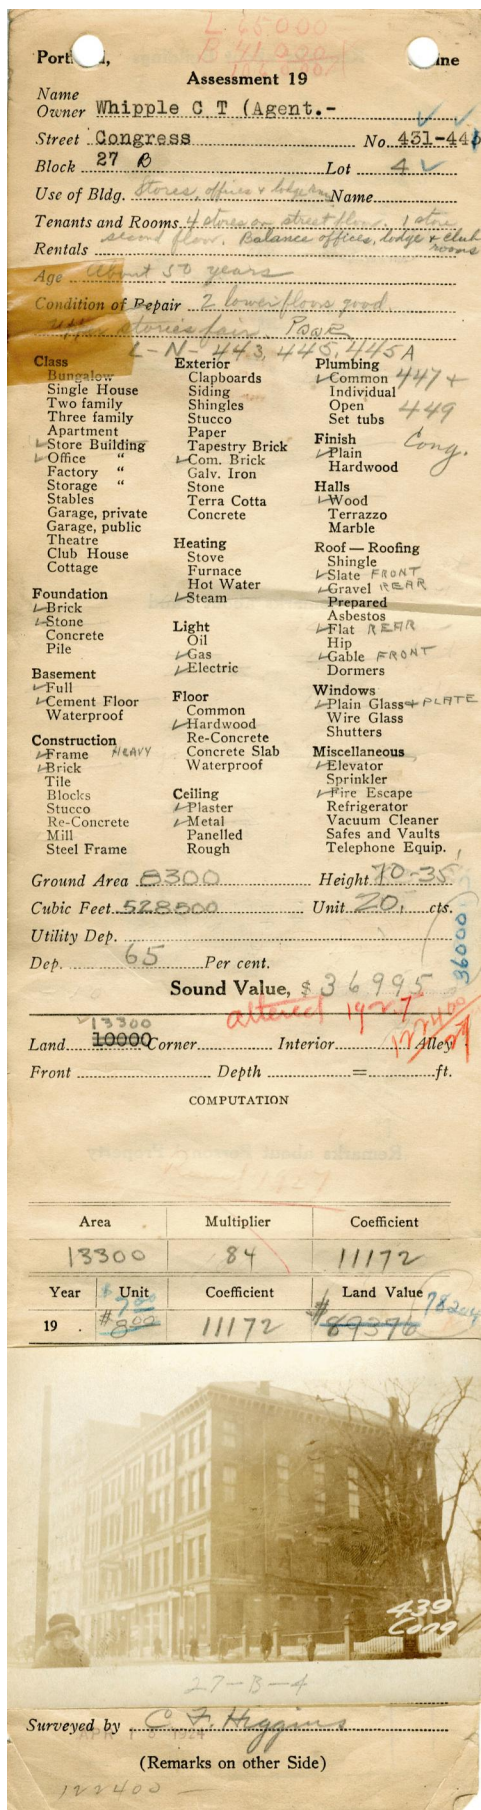 L. 65000
B. 41000
106000
Port d, ine
Assessment 19
Name
Owner Whipple C T (Agent.-
Street Congress No. 431-441
Block 27 B Lot 4
Use of Bldg. Stores, offices & lodge rms Name
Tenants and Rooms 4 stores on street floor. 1 store
second floor. Balance offices, lodge & club rooms
Rentals
Age About 50 years
Condition of Repair 2 lower floors good
upper stories fair. Poor
L-N-443, 445, 445A
447 + 449 Cong.
Class
Bungalow
Single House
Two family
Three family
Apartment
✓Store Building
✓Office "
Factory "
Storage "
Stables
Garage, private
Garage, public
Theatre
Club House
Cottage
Foundation
✓Brick
✓Stone
Concrete
Pile
Basement
✓Full
✓Cement Floor
Waterproof
Construction
✓Frame HEAVY
✓Brick
Tile
Blocks
Stucco
Re-Concrete
Mill
Steel Frame
Exterior
Clapboards
Siding
Shingles
Stucco
Paper
Tapestry Brick
✓Com. Brick
Galv. Iron
Stone
Terra Cotta
Concrete
Heating
Stove
Furnace
Hot Water
✓Steam
Light
Oil
✓Gas
✓Electric
Floor
Common
✓Hardwood
Re-Concrete
Concrete Slab
Waterproof
Ceiling
✓Plaster
✓Metal
Panelled
Rough
Plumbing
✓Common
Individual
Open
Set tubs
Finish
✓Plain
Hardwood
Halls
✓Wood
Terrazzo
Marble
Roof — Roofing
Shingle
✓Slate FRONT
✓Gravel REAR
Prepared
Asbestos
✓Flat REAR
Hip
✓Gable FRONT
Dormers
Windows
✓Plain Glass + PLATE
Wire Glass
Shutters
Miscellaneous
✓Elevator
Sprinkler
✓Fire Escape
Refrigerator
Vacuum Cleaner
Safes and Vaults
Telephone Equip.
Ground Area 8300 Height 70-35'
Cubic Feet 528500 Unit 20, cts.
Utility Dep.
36000
Dep. 65 Per cent.
Sound Value, $ 36995
altered 1927
122400
13300
Land 10000 Corner Interior Alley
Front Depth = ft.
COMPUTATION
1927
Area Multiplier Coefficient
13300 84 11172
Year Unit Coefficient Land Value
$7.00 78204
19 . $8.00 11172 $89376
439
Cong
27-B-4
Surveyed by C F Higgins
APR 1 1924
(Remarks on other Side)
122400 —